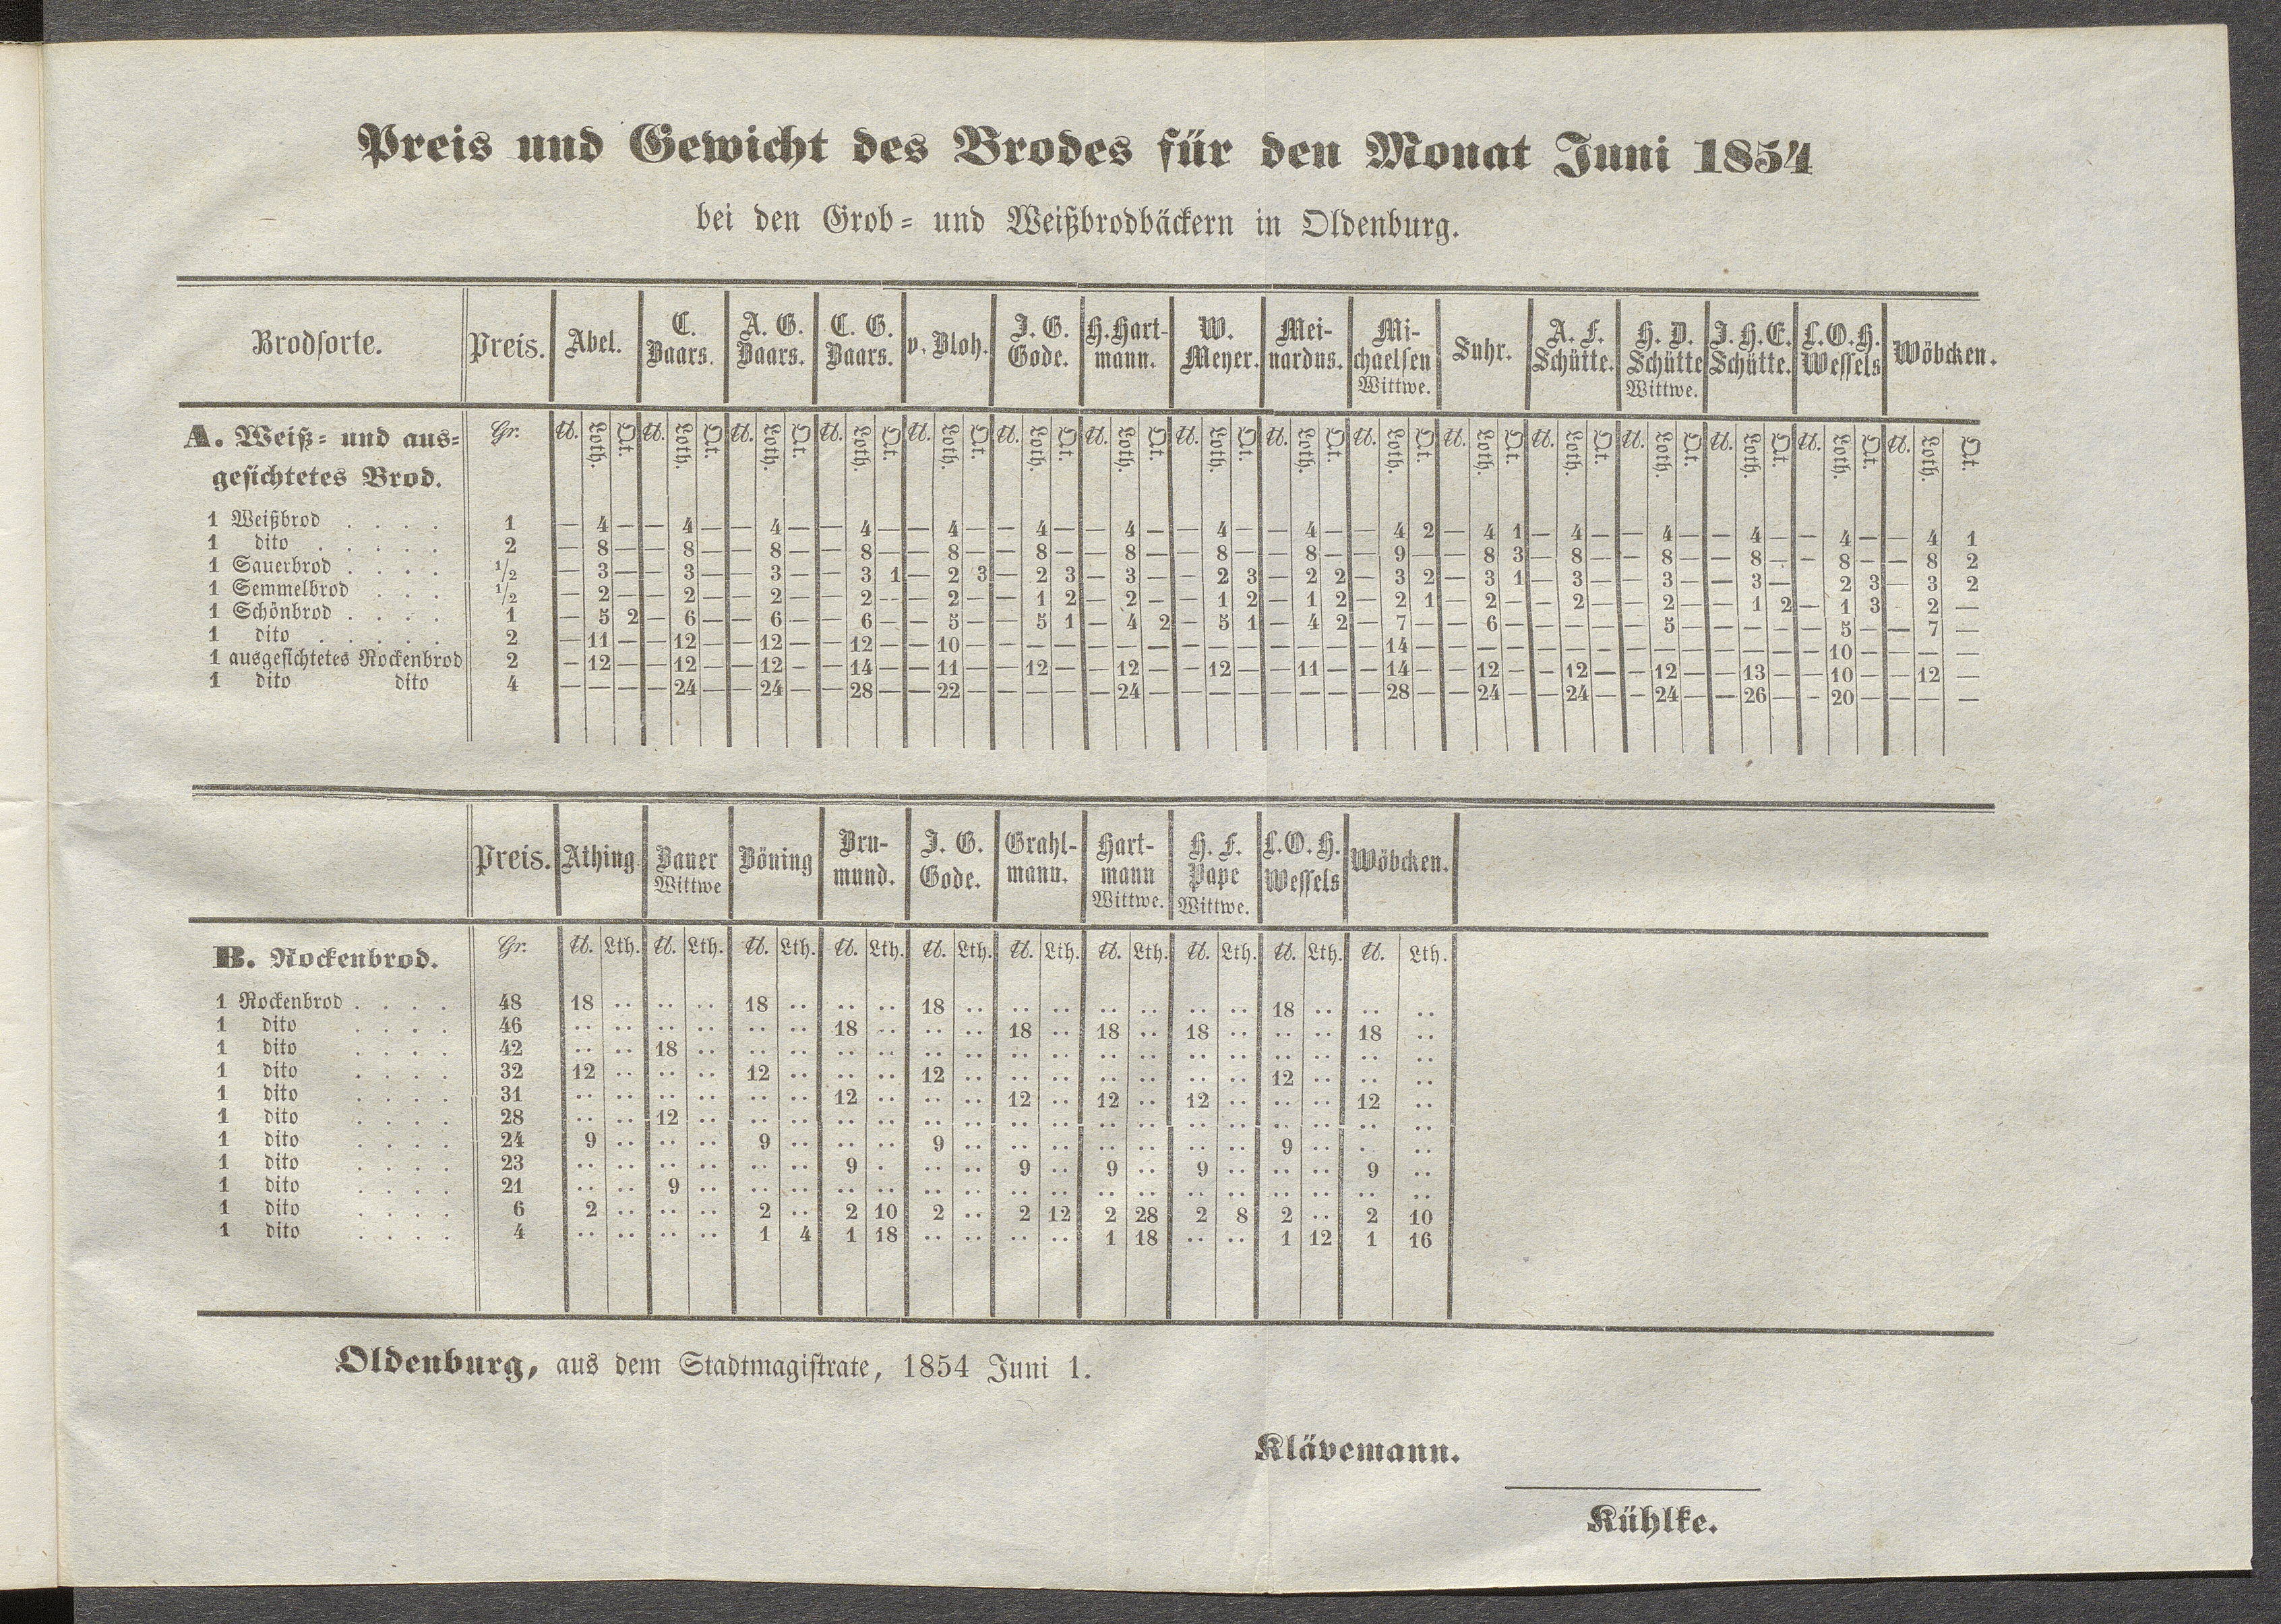 Preis und Gewicht des Brodes für den Monat Juni 1854
bei den Grob- und Weißbrodbäckern in Oldenburg.
Brodsorte. Preis. Abel. C. Baars. A. G. Baars. C. G. Baars. v. Bloh. J. G. Gode. H. Hart-mann. W. Meyer. Mei-nardus. Mi-chaelsen Wittwe. Suhr. A. F. Schütte. H. D. Schütte Wittwe. J. H. E. Schütte. L. O. H. Wessels Wöbcken.
A. Weiß- und aus- Gr. ℔. Loth. Qt. ℔. Loth. Qt. ℔. Loth. Qt. ℔. Loth. Qt. ℔. Loth. Qt. ℔. Loth. Qt. ℔. Loth. Qt. ℔. Loth. Qt. ℔. Loth. Qt. ℔. Loth. Qt. ℔. Loth. Qt. ℔. Loth. Qt. ℔. Loth. Qt. ℔. Loth. Qt. ℔. Loth. Qt. ℔. Loth. Qt.
gesichtetes Brod.
1 Weißbrod . . . . 1 — 4 — — 4 — — 4 — — 4 — — 4 — — 4 — — 4 — — 4 — — 4 — — 4 2 — 4 1 — 4 — — 4 — — 4 — — 4 — — 4 1
1 dito . . . . . 2 — 8 — — 8 — — 8 — — 8 — — 8 — — 8 — — 8 — — 8 — — 8 — — 9 — — 8 3 — 8 — — 8 — — 8 — — 8 — — 8 2
1 Sauerbrod . . . . 1/2 — 3 — — 3 — — 3 — — 3 1 — 2 3 — 2 3 — 3 — — 2 3 — 2 2 — 3 2 — 3 1 — 3 — — 3 — — 3 — — 2 3 — 3 2
1 Semmelbrod . . . 1/2 — 2 — — 2 — — 2 — — 2 — — 2 — — 1 2 — 2 — — 1 2 — 1 2 — 2 1 — 2 — — 2 — — 2 — — 1 2 — 1 3 — 2 —
1 Schönbrod . . . . 1 — 5 2 — 6 — — 6 — — 6 — — 5 — — 5 1 — 4 2 — 5 1 — 4 2 — 7 — — 6 — — — — — 5 — — — — — 5 — — 7 —
1 dito . . . . . 2 — 11 — — 12 — — 12 — — 12 — — 10 — — — — — — — — — — — — — — 14 — — — — — — — — — — — — — — 10 — — — —
1 ausgesichtetes Rockenbrod 2 — 12 — — 12 — — 12 — — 14 — — 11 — — 12 — — 12 — — 12 — — 11 — — 14 — — 12 — — 12 — — 12 — — 13 — — 10 — — 12 —
1 dito dito 4 — — — — 24 — — 24 — — 28 — — 22 — — — — — 24 — — — — — — — — 28 — — 24 — — 24 — — 24 — — 26 — — 20 — — — —
Preis. Athing. Bauer Wittwe Böning Bru-mund. J. G. Gode. Grahl-mann. Hart-mann Wittwe. H. F. Pape Wittwe. L. O. H. Wessels Wöbcken.
B. Rockenbrod. Gr. ℔. Lth. ℔. Lth. ℔. Lth. ℔. Lth. ℔. Lth. ℔. Lth. ℔. Lth. ℔. Lth. ℔. Lth. ℔. Lth.
1 Rockenbrod . . . . 48 18 .. .. .. 18 .. .. .. 18 .. .. .. .. .. .. .. 18 .. .. ..
1 dito . . . . 46 .. .. .. .. .. .. 18 .. .. .. 18 .. 18 .. 18 .. .. .. 18 ..
1 dito . . . . 42 .. .. 18 .. .. .. .. .. .. .. .. .. .. .. .. .. .. .. .. ..
1 dito . . . . 32 12 .. .. .. 12 .. .. .. 12 .. .. .. .. .. .. .. 12 .. .. ..
1 dito . . . . 31 .. .. .. .. .. .. 12 .. .. .. 12 .. 12 .. 12 .. .. .. 12 ..
1 dito . . . . 28 .. .. 12 .. .. .. .. .. .. .. .. .. .. .. .. .. .. .. .. ..
1 dito . . . . 24 9 .. .. .. 9 .. .. .. 9 .. .. .. .. .. .. .. 9 .. . ..
1 dito . . . . 23 .. .. .. .. .. .. 9 . .. .. 9 .. 9 .. 9 .. .. .. 9 ..
1 dito . . . . 21 .. .. 9 .. .. .. .. .. .. .. .. .. .. .. .. .. .. .. .. ..
1 dito . . . . 6 2 .. .. .. 2 .. 2 10 2 .. 2 12 2 28 2 8 2 .. 2 10
1 dito . . . . 4 .. .. .. .. 1 4 1 18 .. .. .. .. 1 18 .. .. 1 12 1 16
Oldenburg, aus dem Stadtmagistrate, 1854 Juni 1.
Klävemann.
Kühlke.